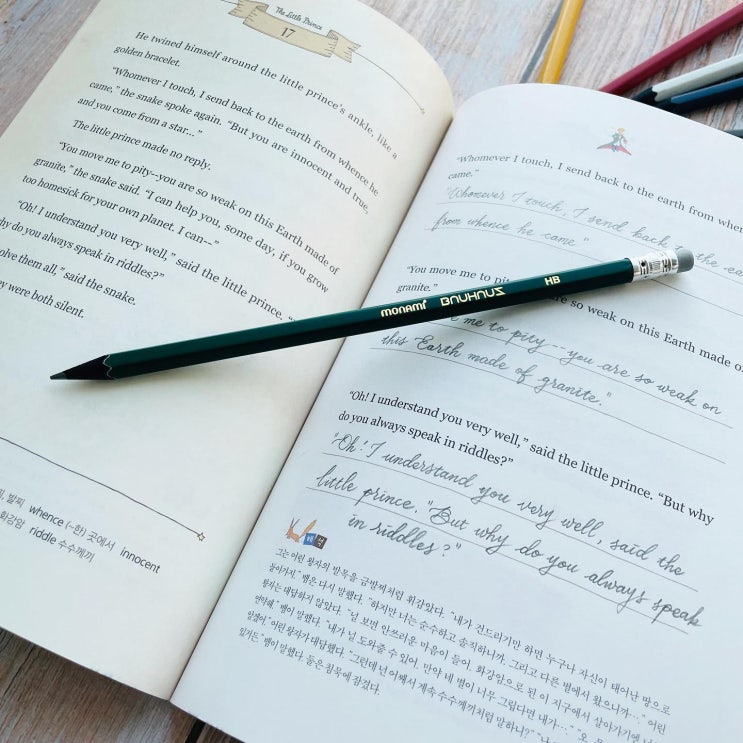 The Little Prince
17
He twined himself around the little prince's ankle, like a
golden bracelet.
"Whomever I touch, I send back to the earth from whence he
came," the snake spoke again. "But you are innocent and true,
and you come from a star..."
The little prince made no reply.
"You move me to pity--you are so weak on this Earth made of
granite," the snake said. "I can help you, some day, if you grow
too homesick for your own planet. I can--"
"Oh! I understand you very well," said the little prince. "
why do you always speak in riddles?"
solve them all," said the snake.
they were both silent.
발찌 whence (~한) 곳에서 innocent
화강암 riddle 수수께끼
"Whomever I touch, I send back to the earth from whence
came."
"Whomever I touch, I send back to the ea
from whence he came."
"You move me to pity are so weak on this Earth made of
granite."
me to pity -- you are so weak on
this Earth made of granite."
"Oh! I understand you very well," said the little prince. "But why
do you always speak in riddles?"
"Oh! I understand you very well, said the
little prince. "But why do you always speak
in riddles?"
monami BAUHAUS HB
그는 어린 왕자의 발목을 금발찌처럼 휘감았다. "내가 건드리기만 하면 누구나 자신이 태어난 땅으로
돌아가지." 뱀은 다시 말했다. "하지만 너는 순수하고 솔직하니까. 그리고 다른 별에서 왔으니까…" 어린
왕자는 대답하지 않았다. "널 보면 안쓰러운 마음이 들어. 화강암으로 된 이 지구에서 살아가기에 너
연약해." 뱀이 말했다. "내가 널 도와줄 수 있어. 만약 네 별이 너무 그립다면 내가…" "오,
알겠어" 어린 왕자가 대답했다. "그런데 넌 어째서 계속 수수께끼처럼 말하니?"
있거든" 뱀이 말했다. 둘은 침묵에 잠겼다.